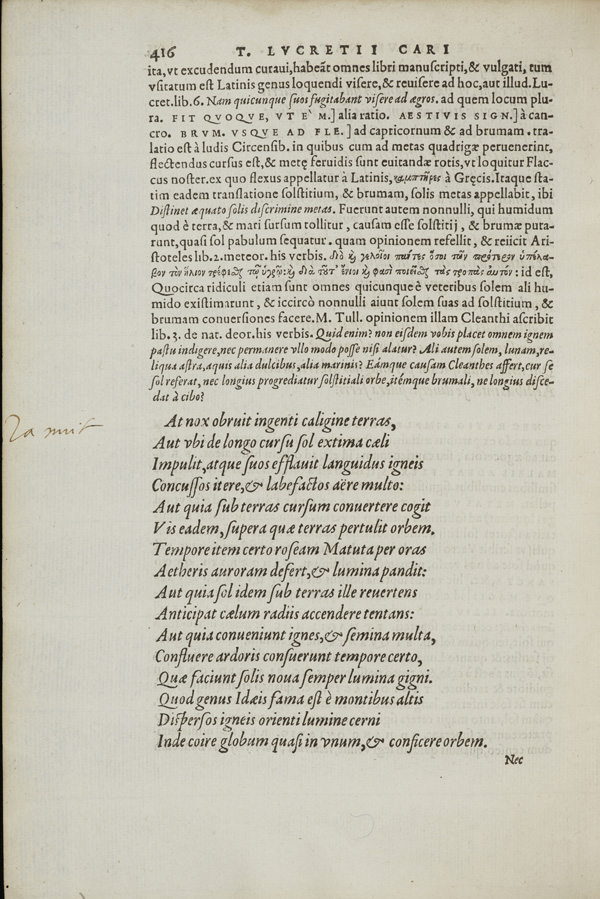 416 T. LVCRETII CARI
ita, vt excudendum curaui, habeãt omnes libri manuscripti, & vulgati, tum
vsitatum est Latinis genus loquendi visere, & reuisere ad hoc, aut illud. Lu-
cret. lib. 6. Nam quicunque suos fugitabant visere ad ægros. ad quem locum plu-
ra. FIT QVOQVE, VT E` M.] alia ratio. AESTIVIS SIGN.] à can-
cro. BRVM. VSQVE AD FLE.] ad capricornum & ad brumam. tra-
latio est à ludis Circensib. in quibus cum ad metas quadrigæ peruenerint,
flectendus cursus est, & metę feruidis sunt euitandæ rotis, vt loquitur Flac-
cus noster. ex quo flexus appellatur à Latinis, καμπτῆρες à Gręcis. Itaque sta-
tim eadem translatione solstitium, & brumam, solis metas appellabit, ibi
Distinet æquato solis discrimine metas. Fuerunt autem nonnulli, qui humidum
quod è terra, & mari sursum tollitur, causam esse solstitij, & brumæ puta-
runt, quasi sol pabulum sequatur. quam opinionem refellit, & reiicit Ari-
stoteles lib. 2. meteor. his verbis. διὸ ϗ γελοῖοι πάντες ὅσοι τῶν πρότερον ὑπέλα-
βον τὸν ἥλιον τρέφεσθαι τῷ ὑγρῷ: ϗ διὰ τοῦτ' ἔνιοι ϗ φασὶ ποιεῖσθαι τὰς τροπὰς αὐτόν: id est,
Quocirca ridiculi etiam sunt omnes quicunque è veteribus solem ali hu-
mido existimarunt, & iccircò nonnulli aiunt solem suas ad solstitium, &
brumam conuersiones facere. M. Tull. opinionem illam Cleanthi ascribit
lib. 3. de nat. deor. his verbis. Quid enim? non eisdem vobis placet omnem ignem
pastu indigere, nec permanere vllo modo posse nisi alatur? Ali autem solem, lunam, re-
liqua astra, aquis alia dulcibus, alia marinis? Eámque causam Cleanthes affert, cur se
sol referat, nec longius progrediatur solstitiali orbe, itémque brumali, ne longius disce-
dat à cibo?
La nuit
At nox obruit ingenti caligine terras,
Aut vbi de longo cursu sol extima cæli
Impulit, atque suos efflauit languidus igneis
Concussos itere, & labefactos aëre multo:
Aut quia sub terras cursum conuertere cogit
Vis eadem, supera quæ terras pertulit orbem.
Tempore item certo roseam Matuta per oras
Aetheris auroram defert, & lumina pandit:
Aut quia sol idem sub terras ille reuertens
Anticipat cælum radiis accendere tentans:
Aut quia conueniunt ignes, & semina multa,
Confluere ardoris consuerunt tempore certo,
Quæ faciunt solis noua semper lumina gigni.
Quod genus Idæis fama est è montibus altis
Dispersos igneis orienti lumine cerni
Inde coire globum quasi in vnum, & conficere orbem.
Nec